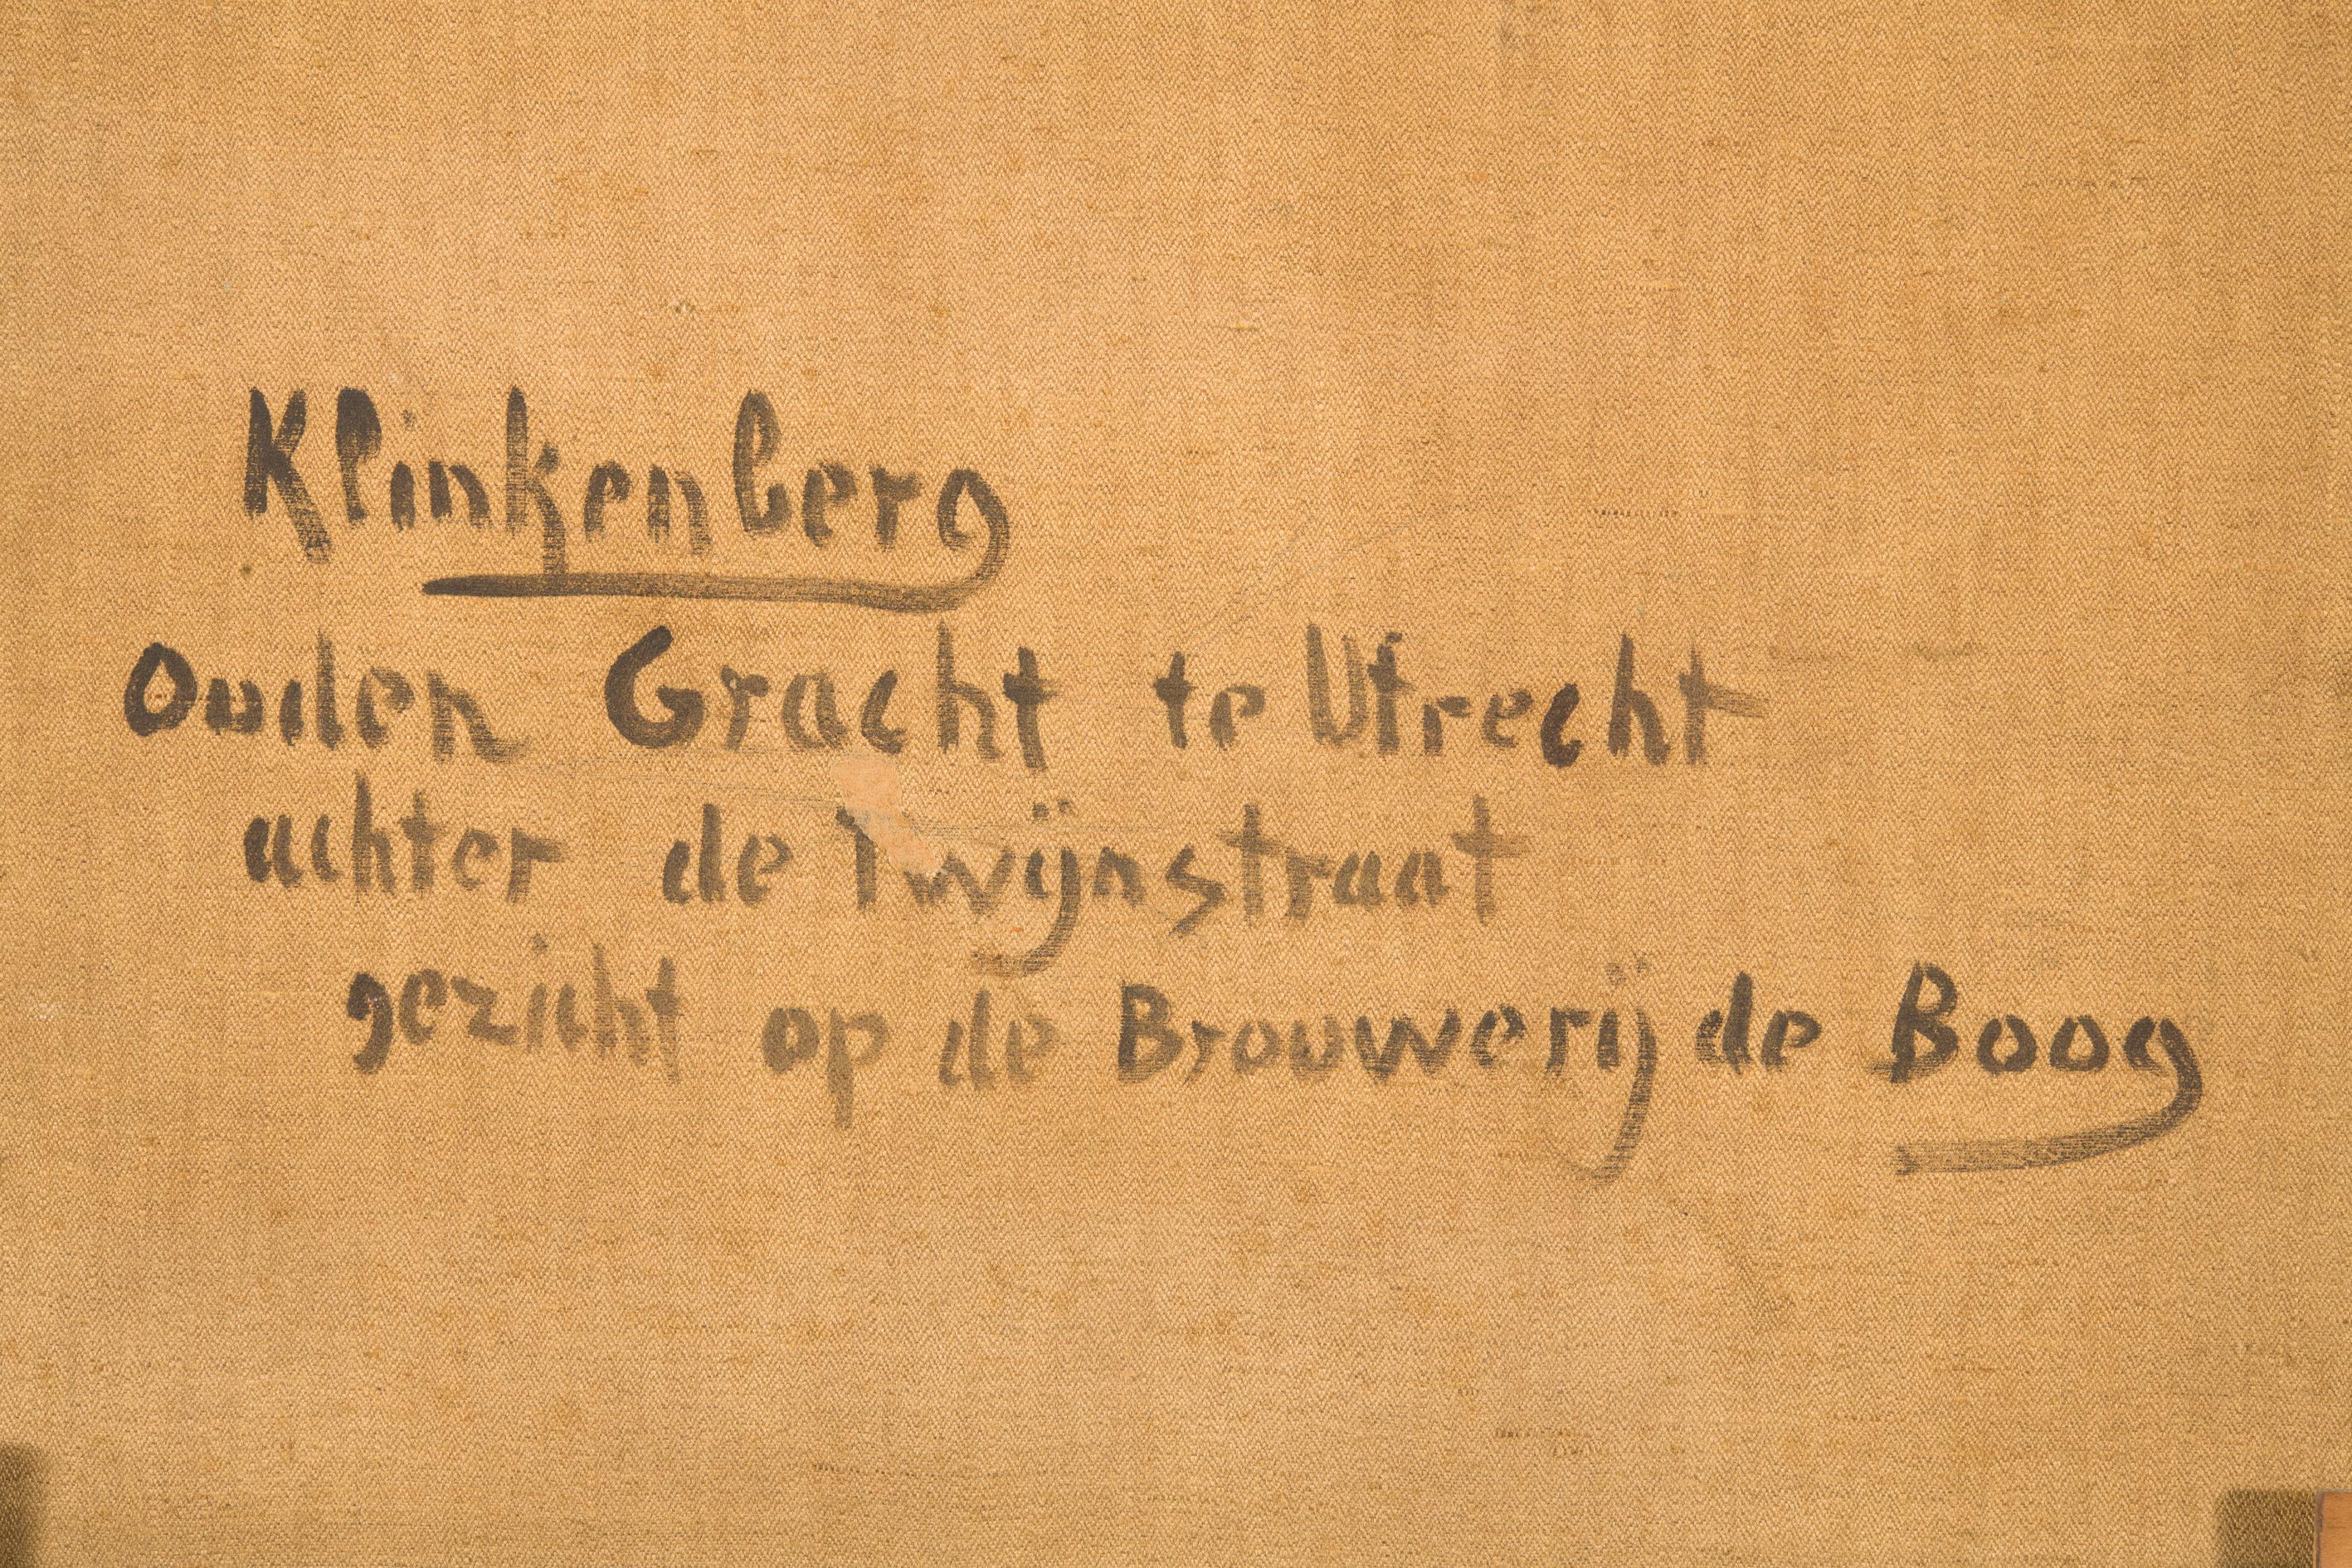 Klinkenberg
Ouden Gracht te Utrecht
achter de Twijnstraat
gezicht op de Brouwerij de Boog